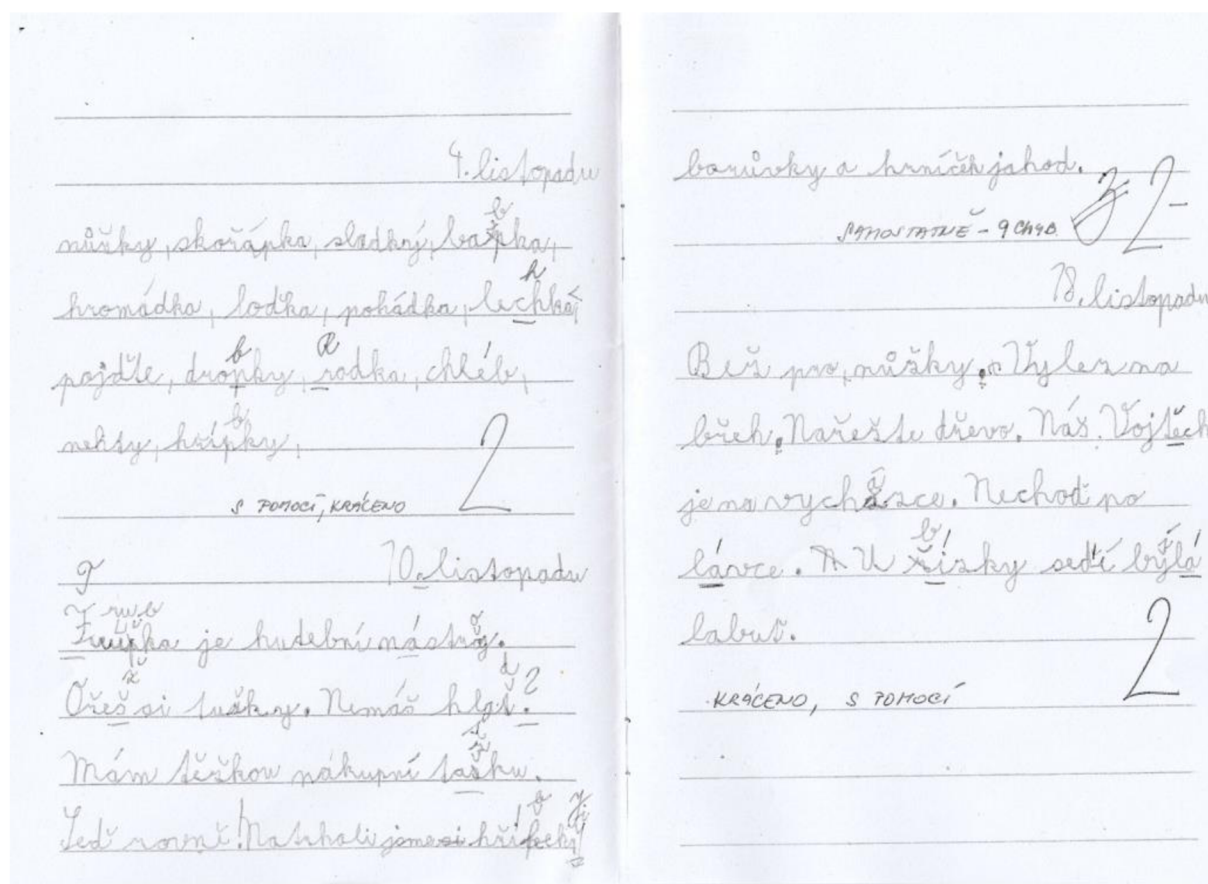 4. listopadu
nůžky, skořápka, sladký, babka,
hromádka, loďka, pohádka, lechká,
pojďte, dropky, rodka, chléb,
nehty, hřípky,
2
S POMOCÍ, KRÁCENO
10. listopadu
je hudební nástroj.
Ořeš si tužky. Nemáš hlad?
Mám těžkou nákupní tašku.
Jeď rovně! Natrhali jsme si
borůvky a hrníček jahod.
2-
SAMOSTATNĚ - 9 CHYB
18. listopadu
Běž pro nůžky. Vylez na
břeh. Nařežte dřevo. Náš Vojtěch
je na vycházce. Nechoď po
lávce. U sedí bílá
labuť.
2
KRÁCENO, S POMOCÍ